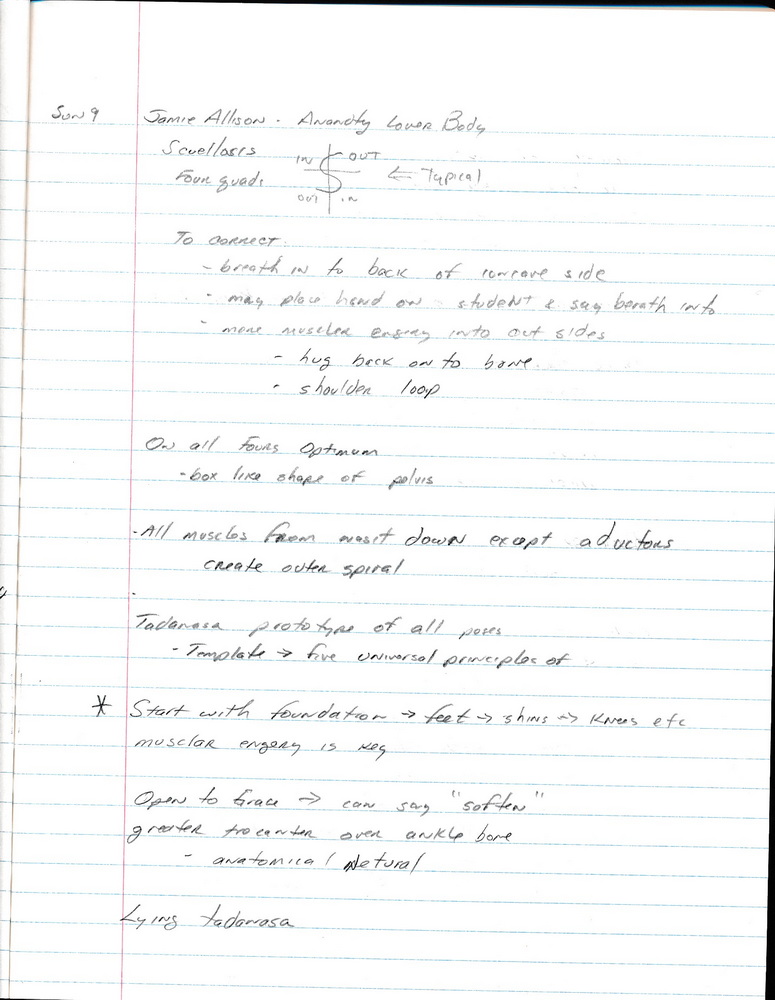 Sun 9 Jamie Allison - Anamoty Lower Body
Scuellosis
IN OUT
Four quads ← Typical
OUT IN
To correct
- breath in to back of concave side
- may place hand on student & say berath into
- more muscler energy into out sides
- hug back on to bone.
- shoulder loop
On all Fours Optimum
- box like shape of pelvis
- All muscles from wasit down except aductors
create outer spiral
Tadanasa prototype of all poses
- Template → five universal principles of
* Start with foundation → feet → shins → knees etc
musclar engery is key
Open to Grace → can say "soften"
greater trocanter over ankle bone
- anatomical Netural
Lying tadanasa